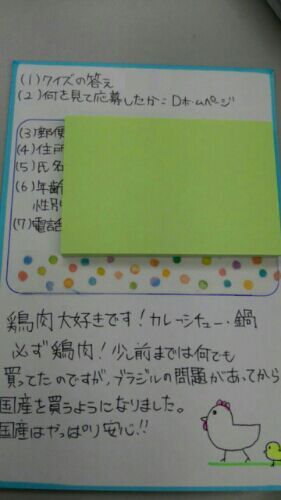 (1)クイズの答え
(2)何を見て応募したか:Dホームページ
(3)郵便
(4)住所
(5)氏名
(6)年齢
性別
(7)電話
鶏肉大好きです!カレーシチュー・鍋
必ず鶏肉!少し前までは何でも
買ってたのですが、ブラジルの問題があってから
国産を買うようになりました。
国産はやっぱり安心!!